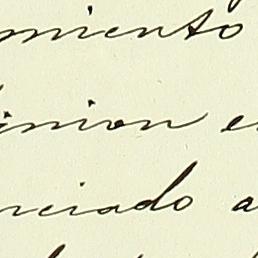 miento
inion e
nciado a